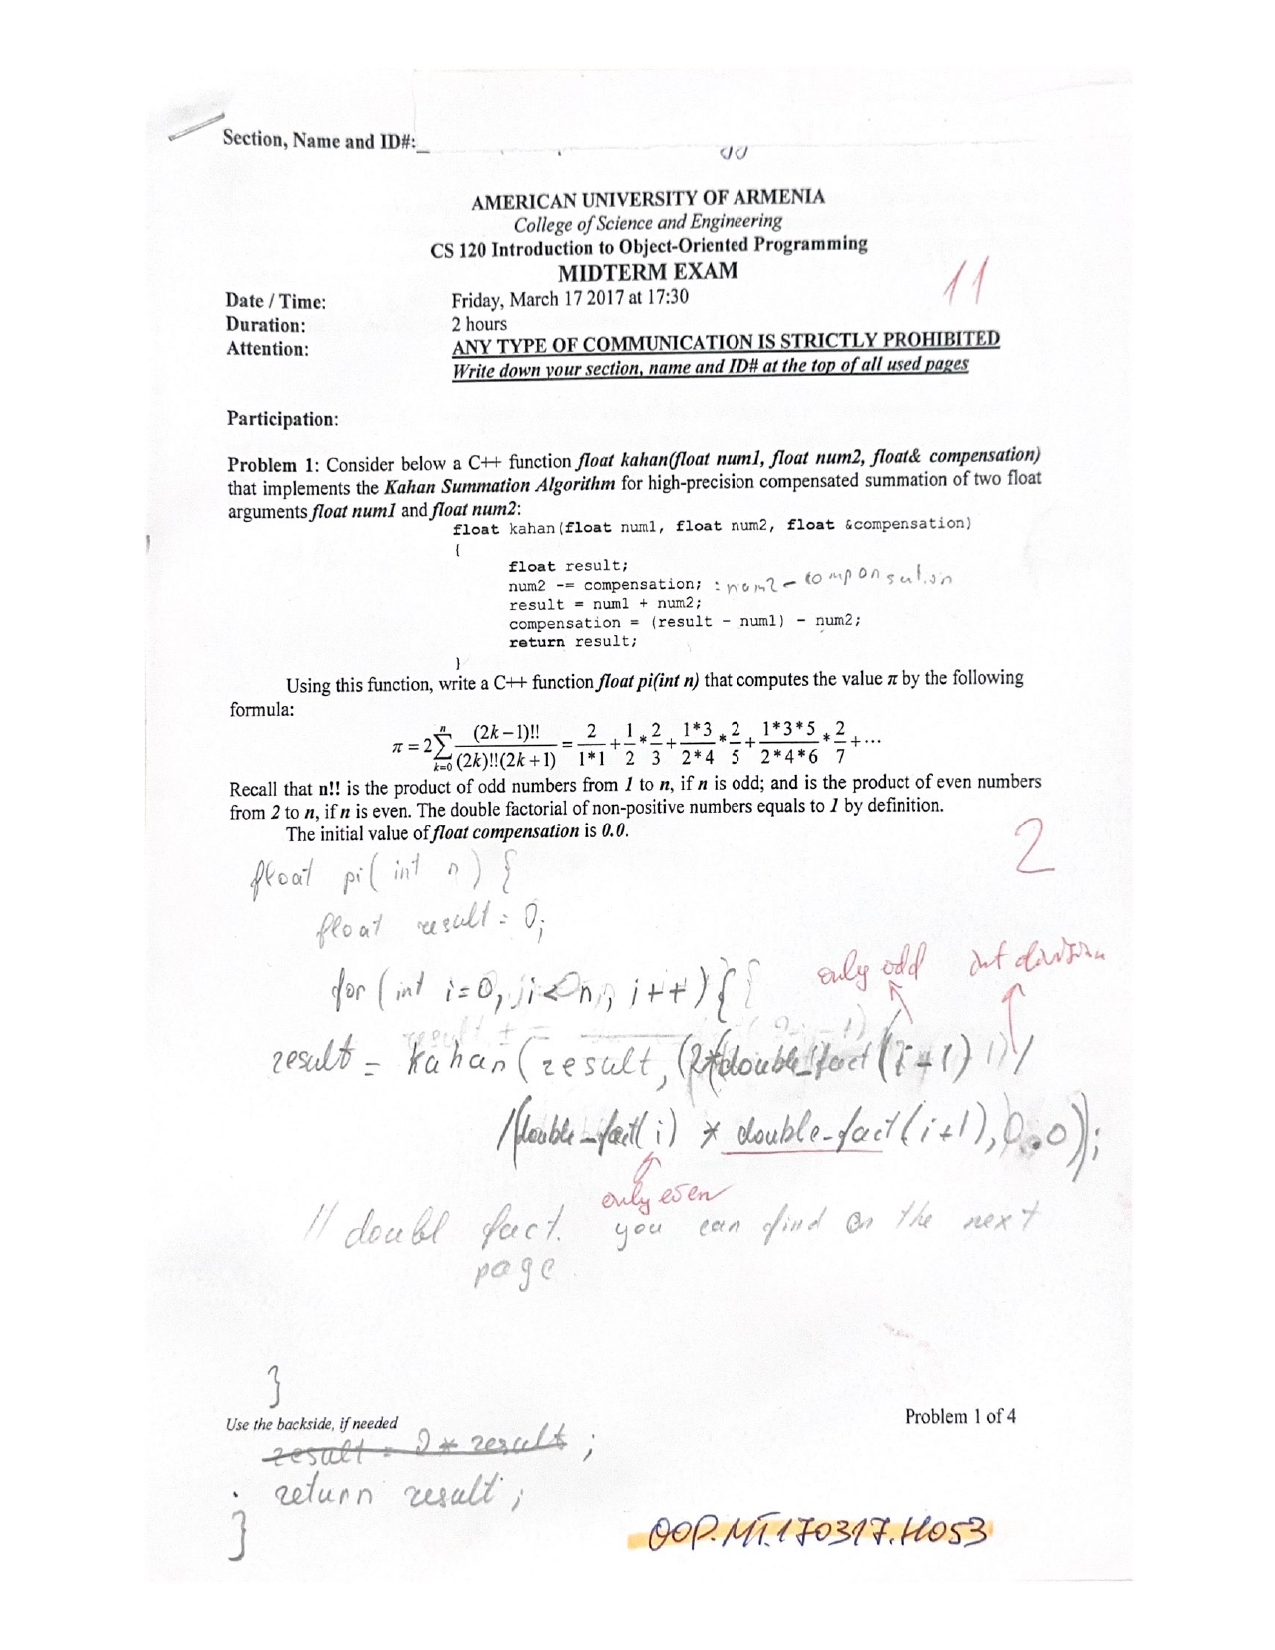 Section, Name and ID#:_
AMERICAN UNIVERSITY OF ARMENIA
College of Science and Engineering
CS 120 Introduction to Object-Oriented Programming
MIDTERM EXAM
11
Date / Time: Friday, March 17 2017 at 17:30
Duration: 2 hours
Attention: ANY TYPE OF COMMUNICATION IS STRICTLY PROHIBITED
Write down your section, name and ID# at the top of all used pages
Participation:
Problem 1: Consider below a C++ function float kahan(float num1, float num2, float& compensation)
that implements the Kahan Summation Algorithm for high-precision compensated summation of two float
arguments float num1 and float num2:
float kahan(float num1, float num2, float &compensation)
{
float result;
num2 -= compensation; : num2 - compensation
result = num1 + num2;
compensation = (result - num1) - num2;
return result;
}
Using this function, write a C++ function float pi(int n) that computes the value π by the following
formula:
π = 2∑_{k=0}^{n} (2k−1)!! / ((2k)!!(2k+1)) = 2/(1*1) + 1/2 * 2/3 + (1*3)/(2*4) * 2/5 + (1*3*5)/(2*4*6) * 2/7 + ⋯
Recall that n!! is the product of odd numbers from 1 to n, if n is odd; and is the product of even numbers
from 2 to n, if n is even. The double factorial of non-positive numbers equals to 1 by definition.
The initial value of float compensation is 0.0.
2
float pi( int n ) {
float result = 0;
only odd int division
for ( int i=0, i<n, i++) {
result = kahan ( result, (2*(double_fact(i+1) )) /
/(double_fact(i) * double-fact(i+1), 0.0);
only even
// doubl fact. you can find on the next
page
}
Use the backside, if needed Problem 1 of 4
result = 2 * result ;
return result ;
}
OOP.MT.170317.H053